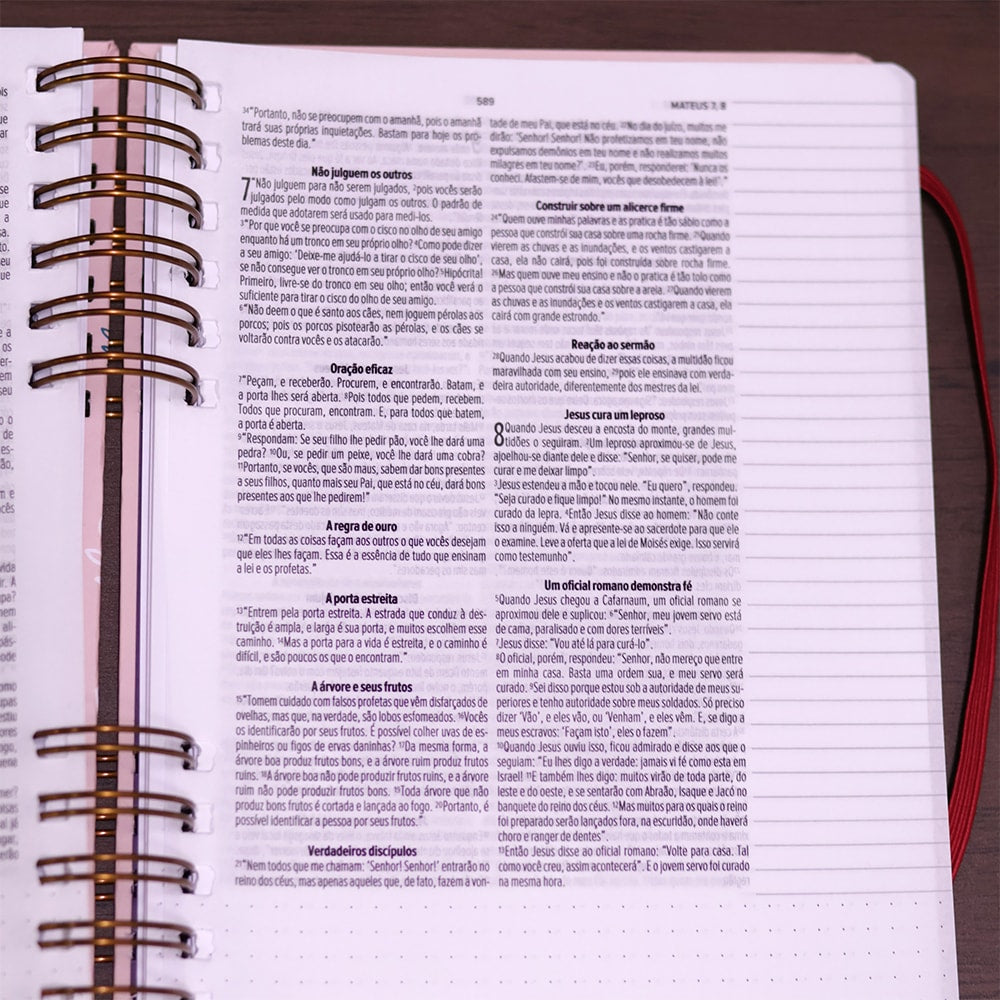 589
MATEUS 7, 8
³⁴“Portanto, não se preocupem com o amanhã, pois o amanhã
trará suas próprias inquietações. Bastam para hoje os pro-
blemas deste dia.”
Não julguem os outros
7 “Não julguem para não serem julgados, ²pois vocês serão
julgados pelo modo como julgam os outros. O padrão de
medida que adotarem será usado para medi-los.
³“Por que você se preocupa com o cisco no olho de seu amigo
enquanto há um tronco em seu próprio olho? ⁴Como pode dizer
a seu amigo: ‘Deixe-me ajudá-lo a tirar o cisco de seu olho’,
se não consegue ver o tronco em seu próprio olho? ⁵Hipócrita!
Primeiro, livre-se do tronco em seu olho; então você verá o
suficiente para tirar o cisco do olho de seu amigo.
⁶“Não deem o que é santo aos cães, nem joguem pérolas aos
porcos; pois os porcos pisotearão as pérolas, e os cães se
voltarão contra vocês e os atacarão.”
Oração eficaz
⁷“Peçam, e receberão. Procurem, e encontrarão. Batam, e
a porta lhes será aberta. ⁸Pois todos que pedem, recebem.
Todos que procuram, encontram. E, para todos que batem,
a porta é aberta.
⁹“Respondam: Se seu filho lhe pedir pão, você lhe dará uma
pedra? ¹⁰Ou, se pedir um peixe, você lhe dará uma cobra?
¹¹Portanto, se vocês, que são maus, sabem dar bons presentes
a seus filhos, quanto mais seu Pai, que está no céu, dará bons
presentes aos que lhe pedirem!”
A regra de ouro
¹²“Em todas as coisas façam aos outros o que vocês desejam
que eles lhes façam. Essa é a essência de tudo que ensinam
a lei e os profetas.”
A porta estreita
¹³“Entrem pela porta estreita. A estrada que conduz à des-
truição é ampla, e larga é sua porta, e muitos escolhem esse
caminho. ¹⁴Mas a porta para a vida é estreita, e o caminho é
difícil, e são poucos os que o encontram.”
A árvore e seus frutos
¹⁵“Tomem cuidado com falsos profetas que vêm disfarçados de
ovelhas, mas que, na verdade, são lobos esfomeados. ¹⁶Vocês
os identificarão por seus frutos. É possível colher uvas de es-
pinheiros ou figos de ervas daninhas? ¹⁷Da mesma forma, a
árvore boa produz frutos bons, e a árvore ruim produz frutos
ruins. ¹⁸A árvore boa não pode produzir frutos ruins, e a árvore
ruim não pode produzir frutos bons. ¹⁹Toda árvore que não
produz bons frutos é cortada e lançada ao fogo. ²⁰Portanto, é
possível identificar a pessoa por seus frutos.”
Verdadeiros discípulos
²¹“Nem todos que me chamam: ‘Senhor! Senhor!’ entrarão no
reino dos céus, mas apenas aqueles que, de fato, fazem a von-
tade de meu Pai, que está no céu. ²²No dia do juízo, muitos me
dirão: ‘Senhor! Senhor! Não profetizamos em teu nome, não
expulsamos demônios em teu nome e não realizamos muitos
milagres em teu nome?’. ²³Eu, porém, responderei: ‘Nunca os
conheci. Afastem-se de mim, vocês que desobedecem à lei!’.”
Construir sobre um alicerce firme
²⁴“Quem ouve minhas palavras e as pratica é tão sábio como a
pessoa que constrói sua casa sobre uma rocha firme. ²⁵Quando
vierem as chuvas e as inundações, e os ventos castigarem a
casa, ela não cairá, pois foi construída sobre rocha firme.
²⁶Mas quem ouve meu ensino e não o pratica é tão tolo como
a pessoa que constrói sua casa sobre a areia. ²⁷Quando vierem
as chuvas e as inundações e os ventos castigarem a casa, ela
cairá com grande estrondo.”
Reação ao sermão
²⁸Quando Jesus acabou de dizer essas coisas, a multidão ficou
maravilhada com seu ensino, ²⁹pois ele ensinava com verda-
deira autoridade, diferentemente dos mestres da lei.
Jesus cura um leproso
8 Quando Jesus desceu a encosta do monte, grandes mul-
tidões o seguiram. ²Um leproso aproximou-se de Jesus,
ajoelhou-se diante dele e disse: “Senhor, se quiser, pode me
curar e me deixar limpo”.
³Jesus estendeu a mão e tocou nele. “Eu quero”, respondeu.
“Seja curado e fique limpo!” No mesmo instante, o homem foi
curado da lepra. ⁴Então Jesus disse ao homem: “Não conte
isso a ninguém. Vá e apresente-se ao sacerdote para que ele
o examine. Leve a oferta que a lei de Moisés exige. Isso servirá
como testemunho”.
Um oficial romano demonstra fé
⁵Quando Jesus chegou a Cafarnaum, um oficial romano se
aproximou dele e suplicou: ⁶“Senhor, meu jovem servo está
de cama, paralisado e com dores terríveis”.
⁷Jesus disse: “Vou até lá para curá-lo”.
⁸O oficial, porém, respondeu: “Senhor, não mereço que entre
em minha casa. Basta uma ordem sua, e meu servo será
curado. ⁹Sei disso porque estou sob a autoridade de meus su-
periores e tenho autoridade sobre meus soldados. Só preciso
dizer ‘Vão’, e eles vão, ou ‘Venham’, e eles vêm. E, se digo a
meus escravos: ‘Façam isto’, eles o fazem”.
¹⁰Quando Jesus ouviu isso, ficou admirado e disse aos que o
seguiam: “Eu lhes digo a verdade: jamais vi fé como esta em
Israel! ¹¹E também lhes digo: muitos virão de toda parte, do
leste e do oeste, e se sentarão com Abraão, Isaque e Jacó no
banquete do reino dos céus. ¹²Mas muitos para os quais o reino
foi preparado serão lançados fora, na escuridão, onde haverá
choro e ranger de dentes”.
¹³Então Jesus disse ao oficial romano: “Volte para casa. Tal
como você creu, assim acontecerá”. E o jovem servo foi curado
na mesma hora.